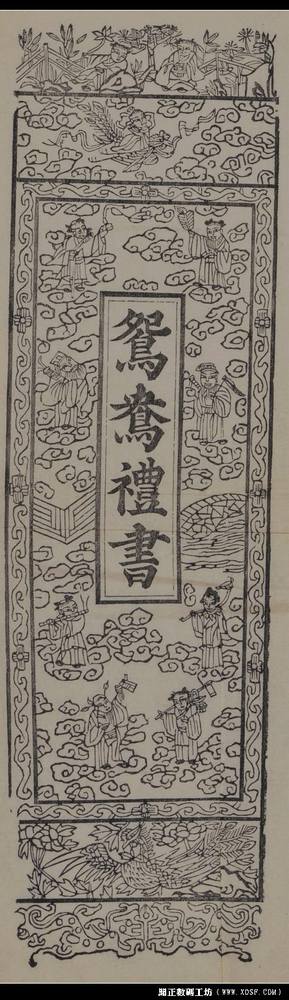 鴛鴦禮書
闕正數碼工坊（WWW.XOSF.COM）